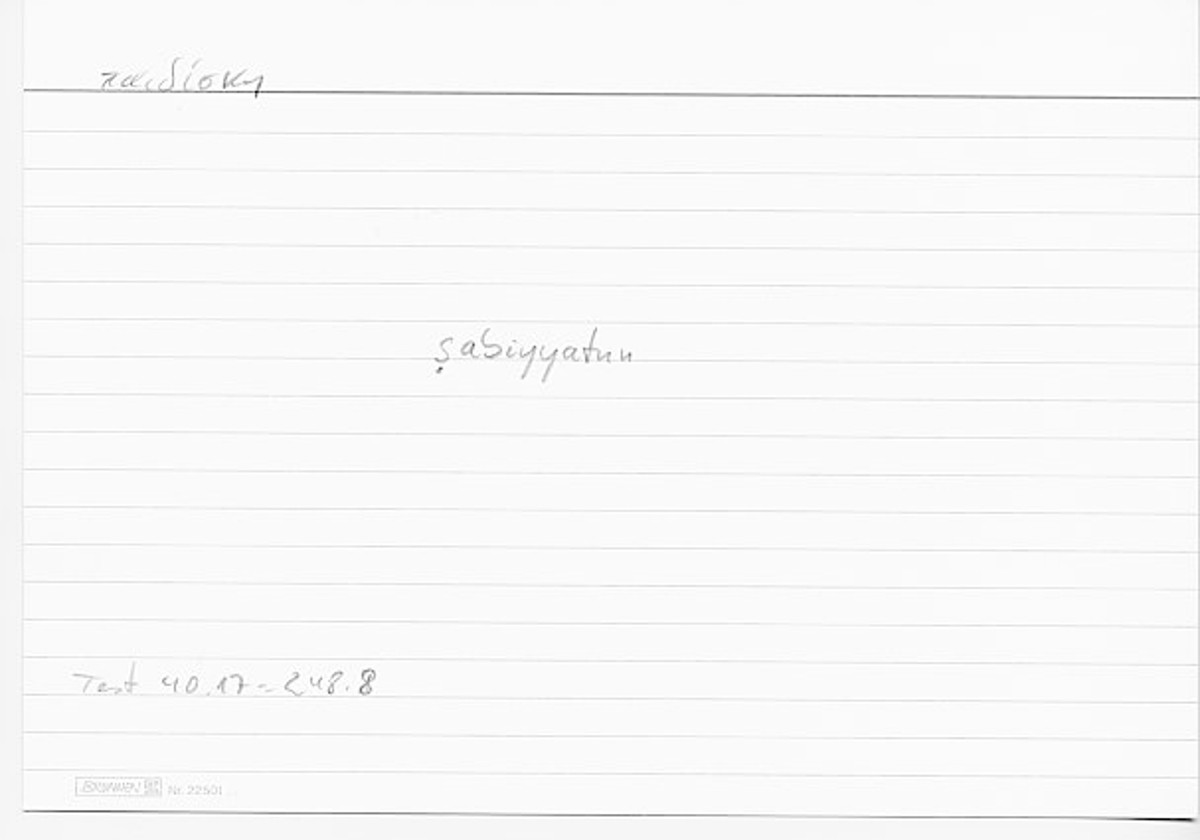 παιδίσκη
ṣabiyyatun
Test 40.17 = 248.8
BRUNNEN Nr. 22501